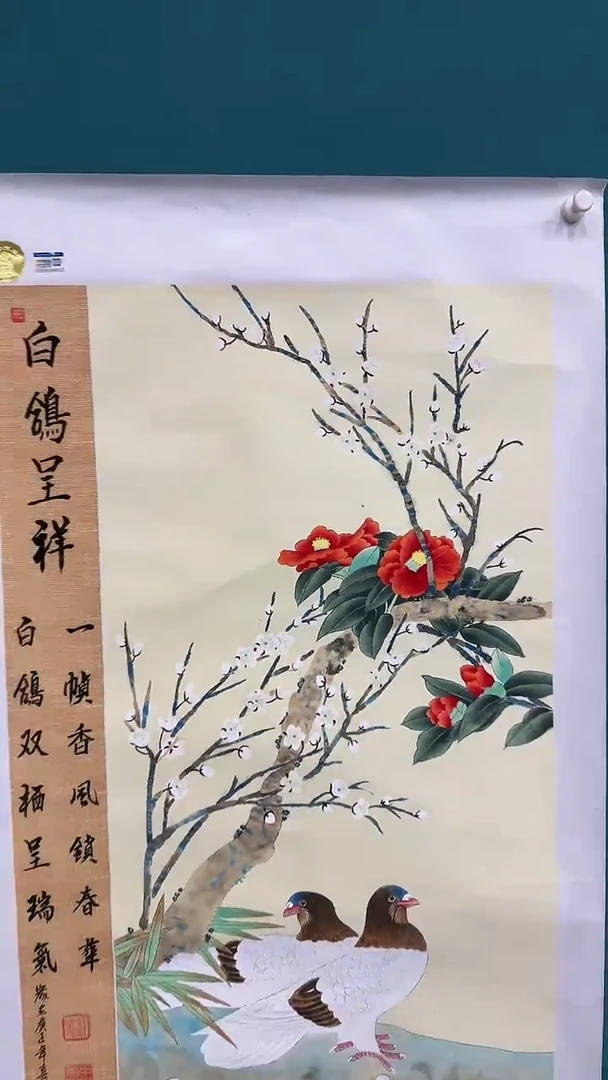 白鴿呈祥
一幀香風鎖春華
白鴿双栖呈瑞氣
歲在庚子年